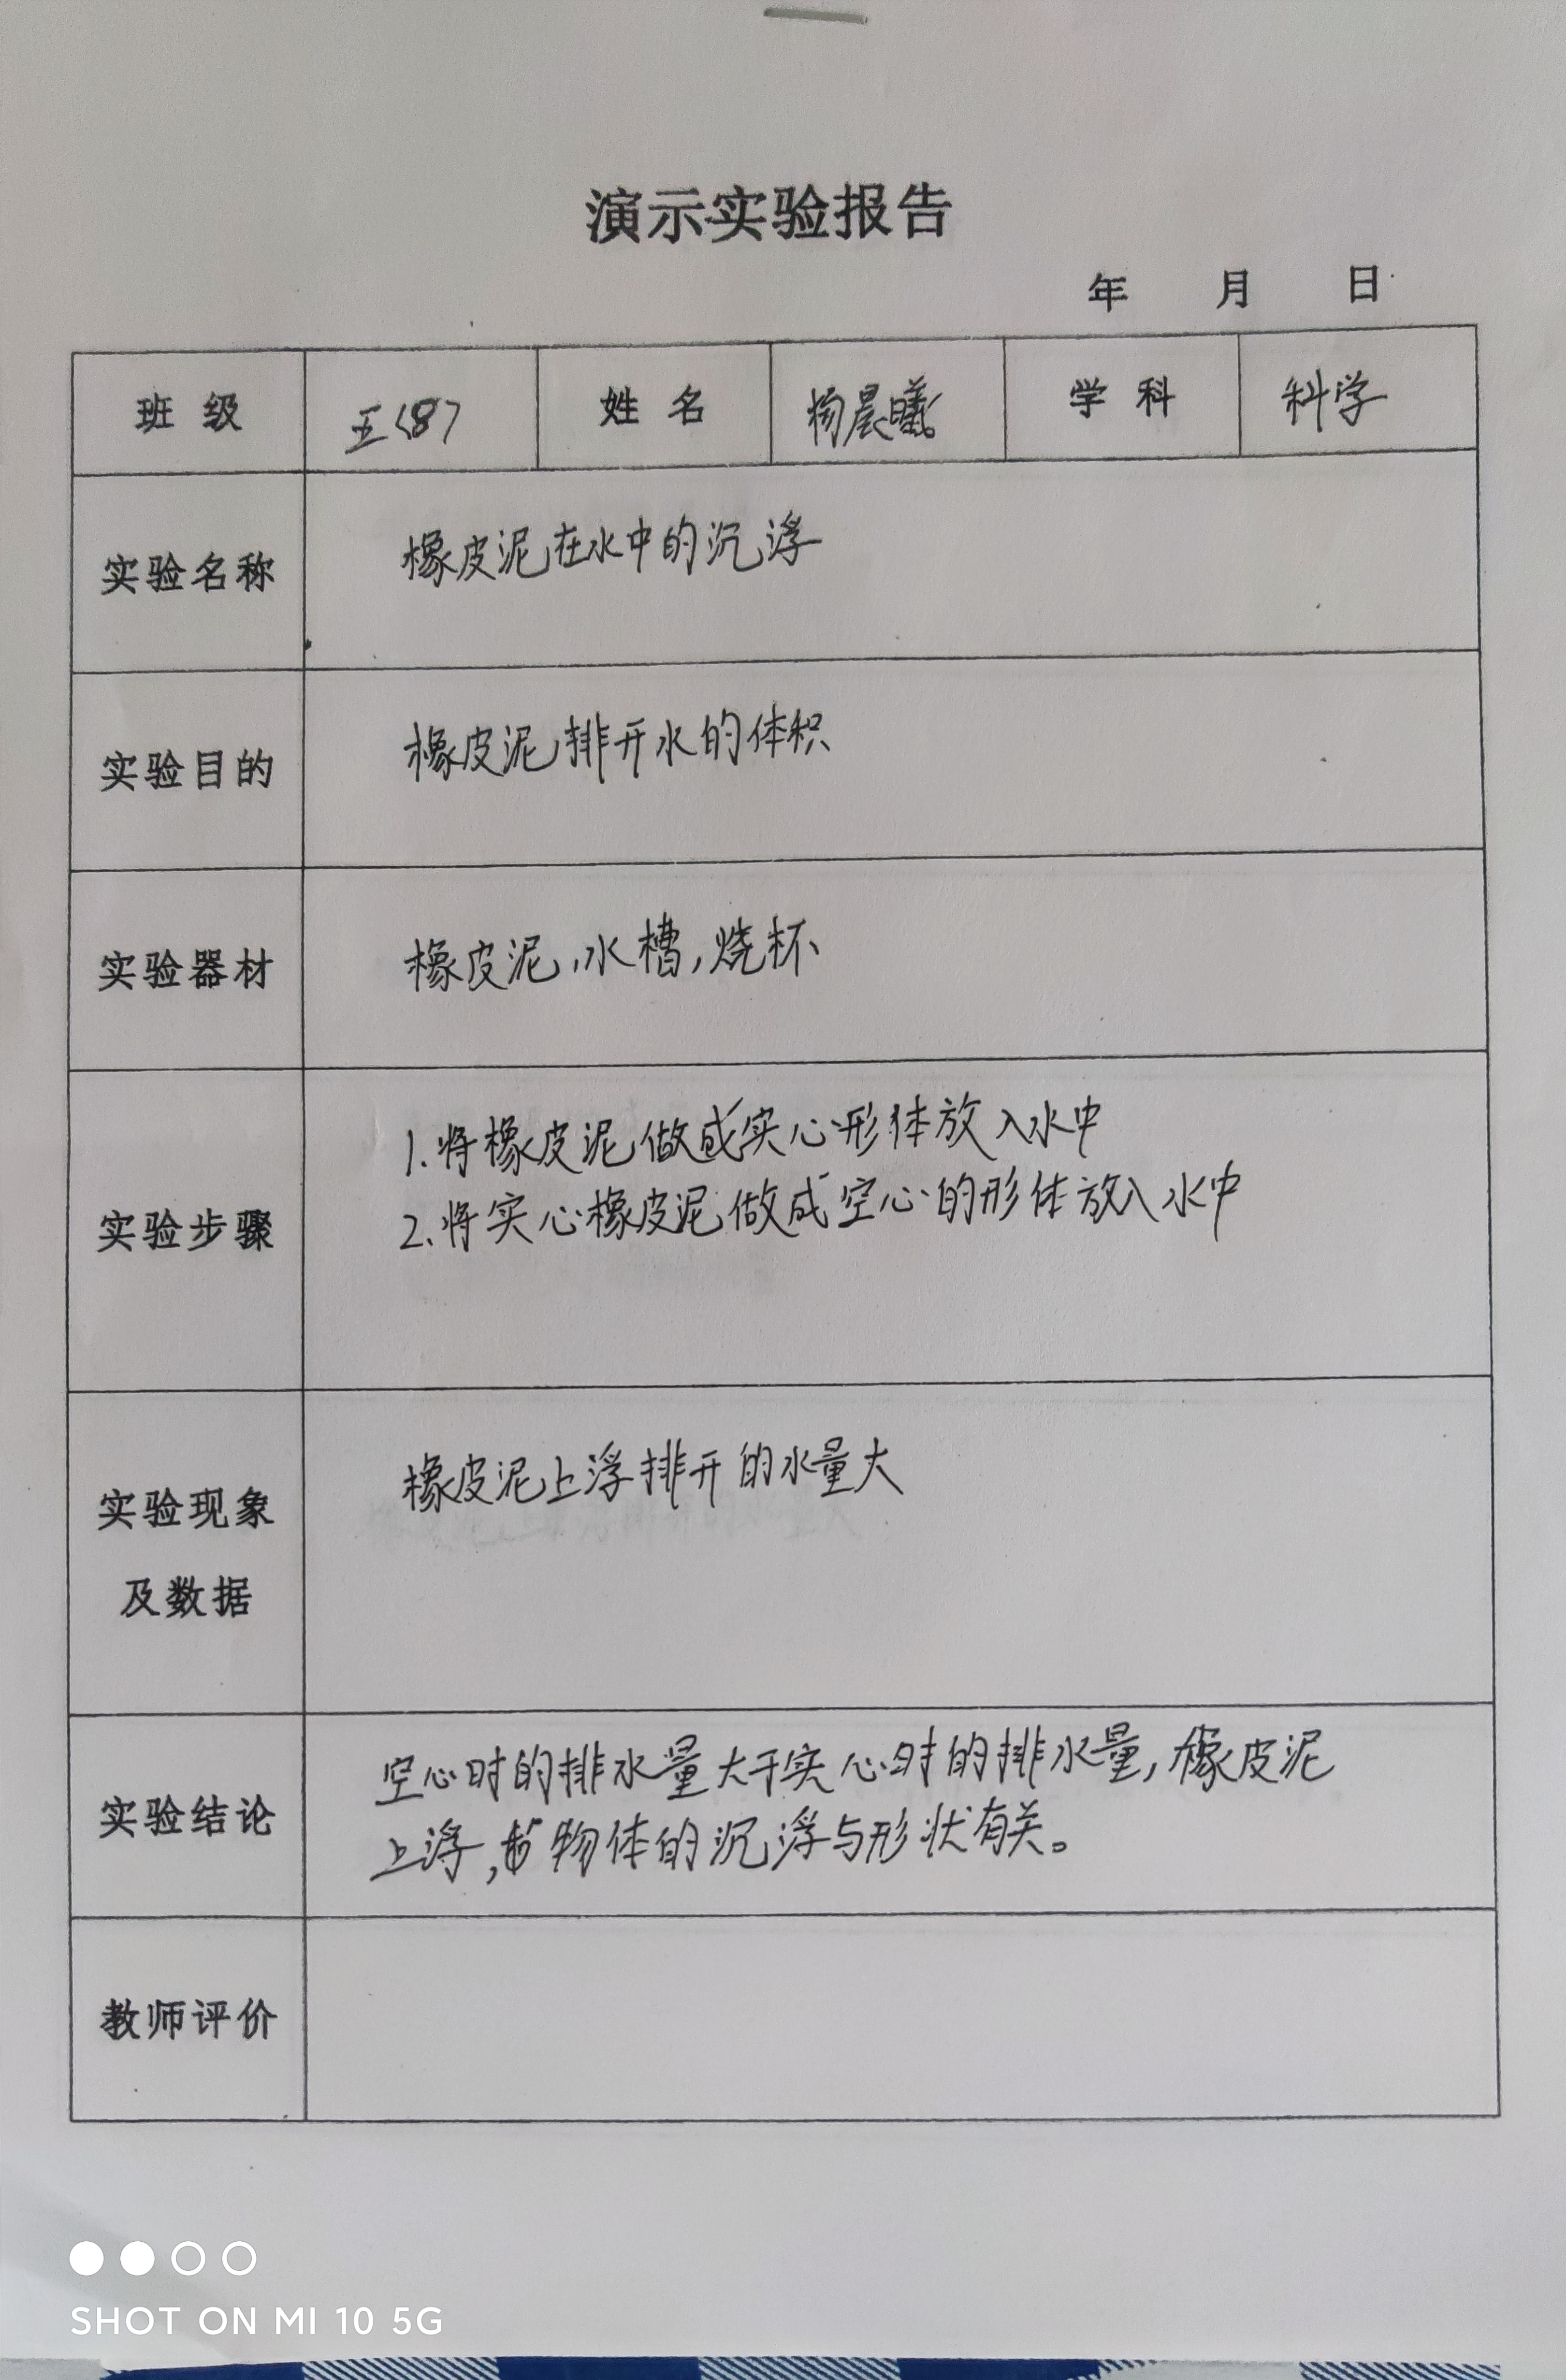 演示实验报告
年 月 日
班级 五(8) 姓名 杨晨曦 学科 科学
实验名称 橡皮泥在水中的沉浮
实验目的 橡皮泥排开水的体积
实验器材 橡皮泥,水槽,烧杯
实验步骤
1.将橡皮泥做成实心形体放入水中
2.将实心橡皮泥做成空心的形体放入水中
实验现象
及数据
橡皮泥上浮排开的水量大
实验结论
空心时的排水量大于实心时的排水量,橡皮泥
上浮,物体的沉浮与形状有关。
教师评价
SHOT ON MI 10 5G